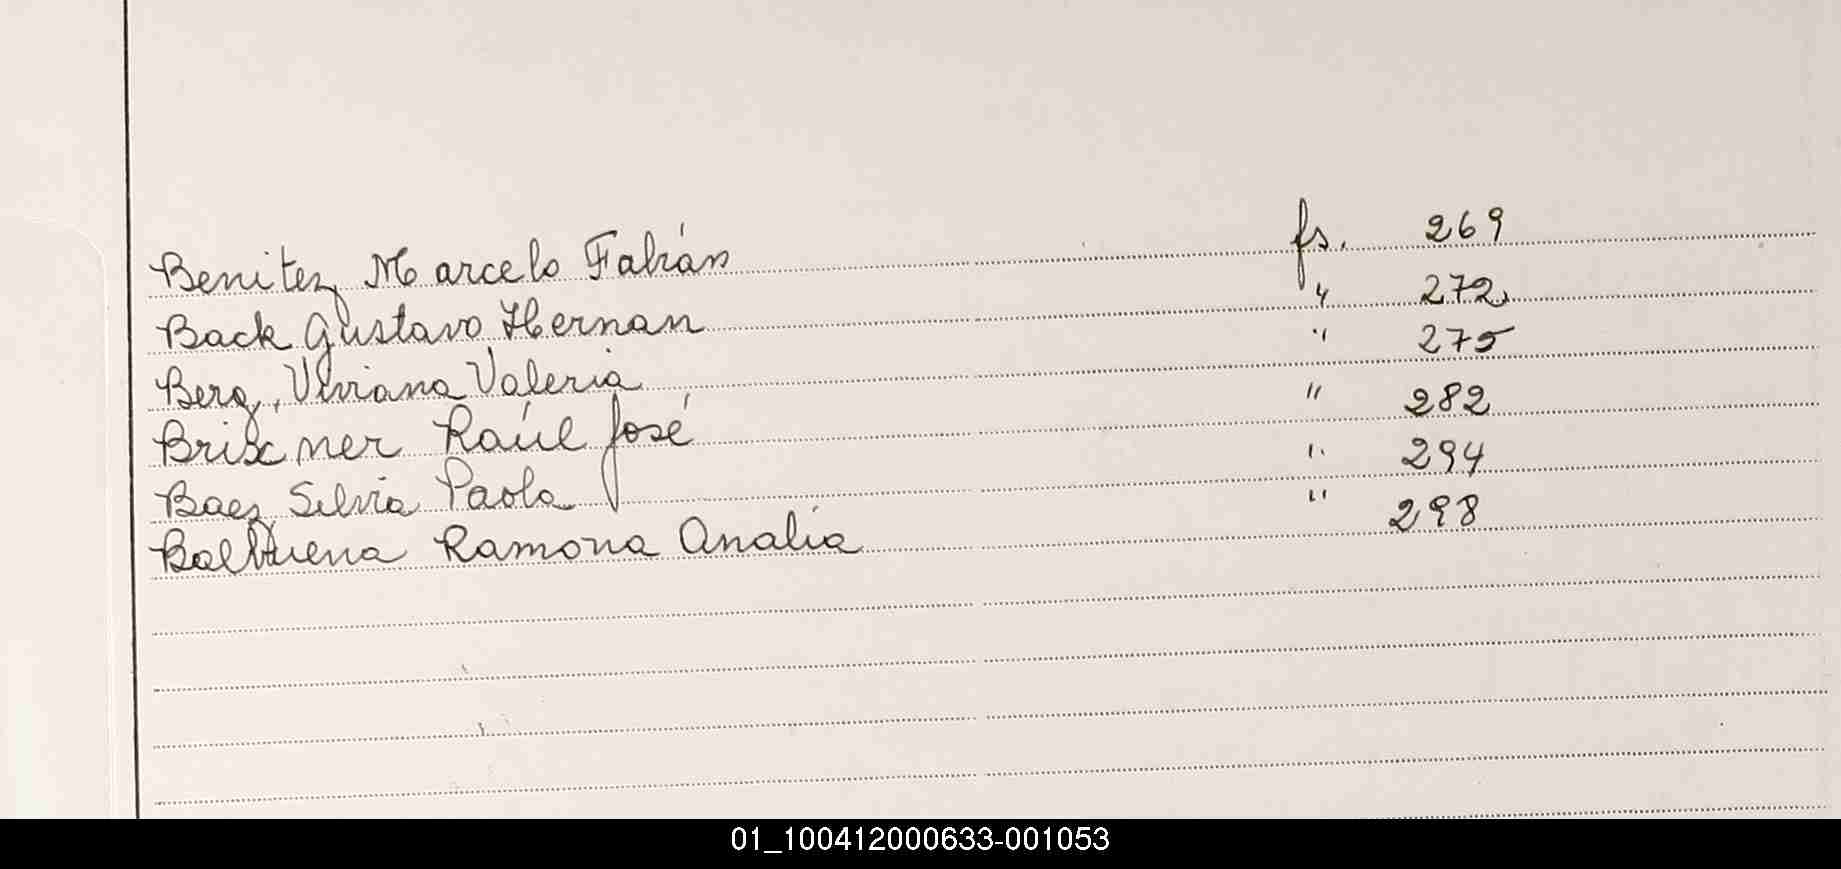 Benitez Marcelo Fabián fs. 269
Back Gustavo Hernan " 272
Berg, Viviana Valeria " 275
Brixner Raúl José " 282
Baez Silvia Paola " 294
Balbuena Ramona Analia " 298
01_100412000633-001053